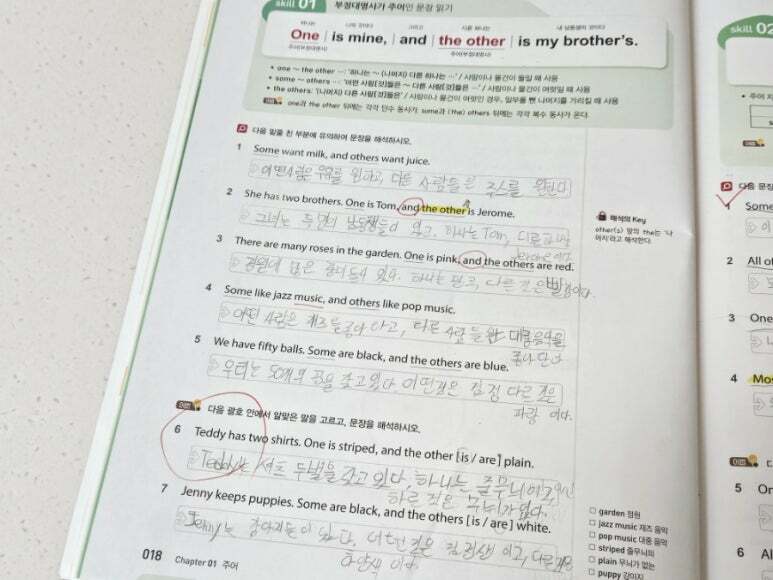 skill 01 부정대명사가 주어인 문장 읽기
하나는 나의 것이다 그리고 다른 하나는 내 남동생의 것이다
One is mine, and the other is my brother's.
주어(부정대명사) 주어(부정대명사)
• one ~ the other …: '하나는 ~ (나머지) 다른 하나는 …' / 사람이나 물건이 둘일 때 사용
• some ~ others …: '어떤 사람[것]들은 ~ 다른 사람[것]들은 …' / 사람이나 물건이 여럿일 때 사용
• the others: '(나머지) 다른 사람[것]들은' / 사람이나 물건이 여럿인 경우, 일부를 뺀 나머지를 가리킬 때 사용
어법 one과 the other 뒤에는 각각 단수 동사가, some과 (the) others 뒤에는 각각 복수 동사가 온다.
다음 밑줄 친 부분에 유의하여 문장을 해석하시오.
1 Some want milk, and others want juice.
어떤 사람은 우유를 원하고, 다른 사람들은 주스를 원한다
2 She has two brothers. One is Tom, and the other is Jerome.
그녀는 두명의 남동생들이 있고, 하나는 Tom, 다른
3 There are many roses in the garden. One is pink, and the others are red.
정원에 많은 장미들이 있다. 하나는 핑크, 다른 것은 빨강이다.
4 Some like jazz music, and others like pop music.
어떤 사람은 재즈를 좋아 하고, 다른 사람들은 대중음악을
5 We have fifty balls. Some are black, and the others are blue.
우리는 50개의 공을 갖고있다. 어떤것은 검정 다른 것은
파랑 이다.
어법 다음 괄호 안에서 알맞은 말을 고르고, 문장을 해석하시오.
6 Teddy has two shirts. One is striped, and the other [is / are] plain.
Teddy는 셔츠 두벌을 갖고 있다, 하나는 줄무늬이고,
무늬가 없다.
7 Jenny keeps puppies. Some are black, and the others [is / are] white.
Jenny는 강아지들이 있다, 어떤것은 검정색 이고, 다른
하얀색 이다
해석의 Key
other(s) 앞의 the는 '나
머지'라고 해석한다.
garden 정원
jazz music 재즈 음악
pop music 대중 음악
striped 줄무늬의
plain 무늬가 없는
puppy 강아지
018 Chapter 01 주어
skill 02
• 주어 자
어법
다음 문장
1 Some
2 All o
3 One
4 Mos
어법 다
5 On
6 All